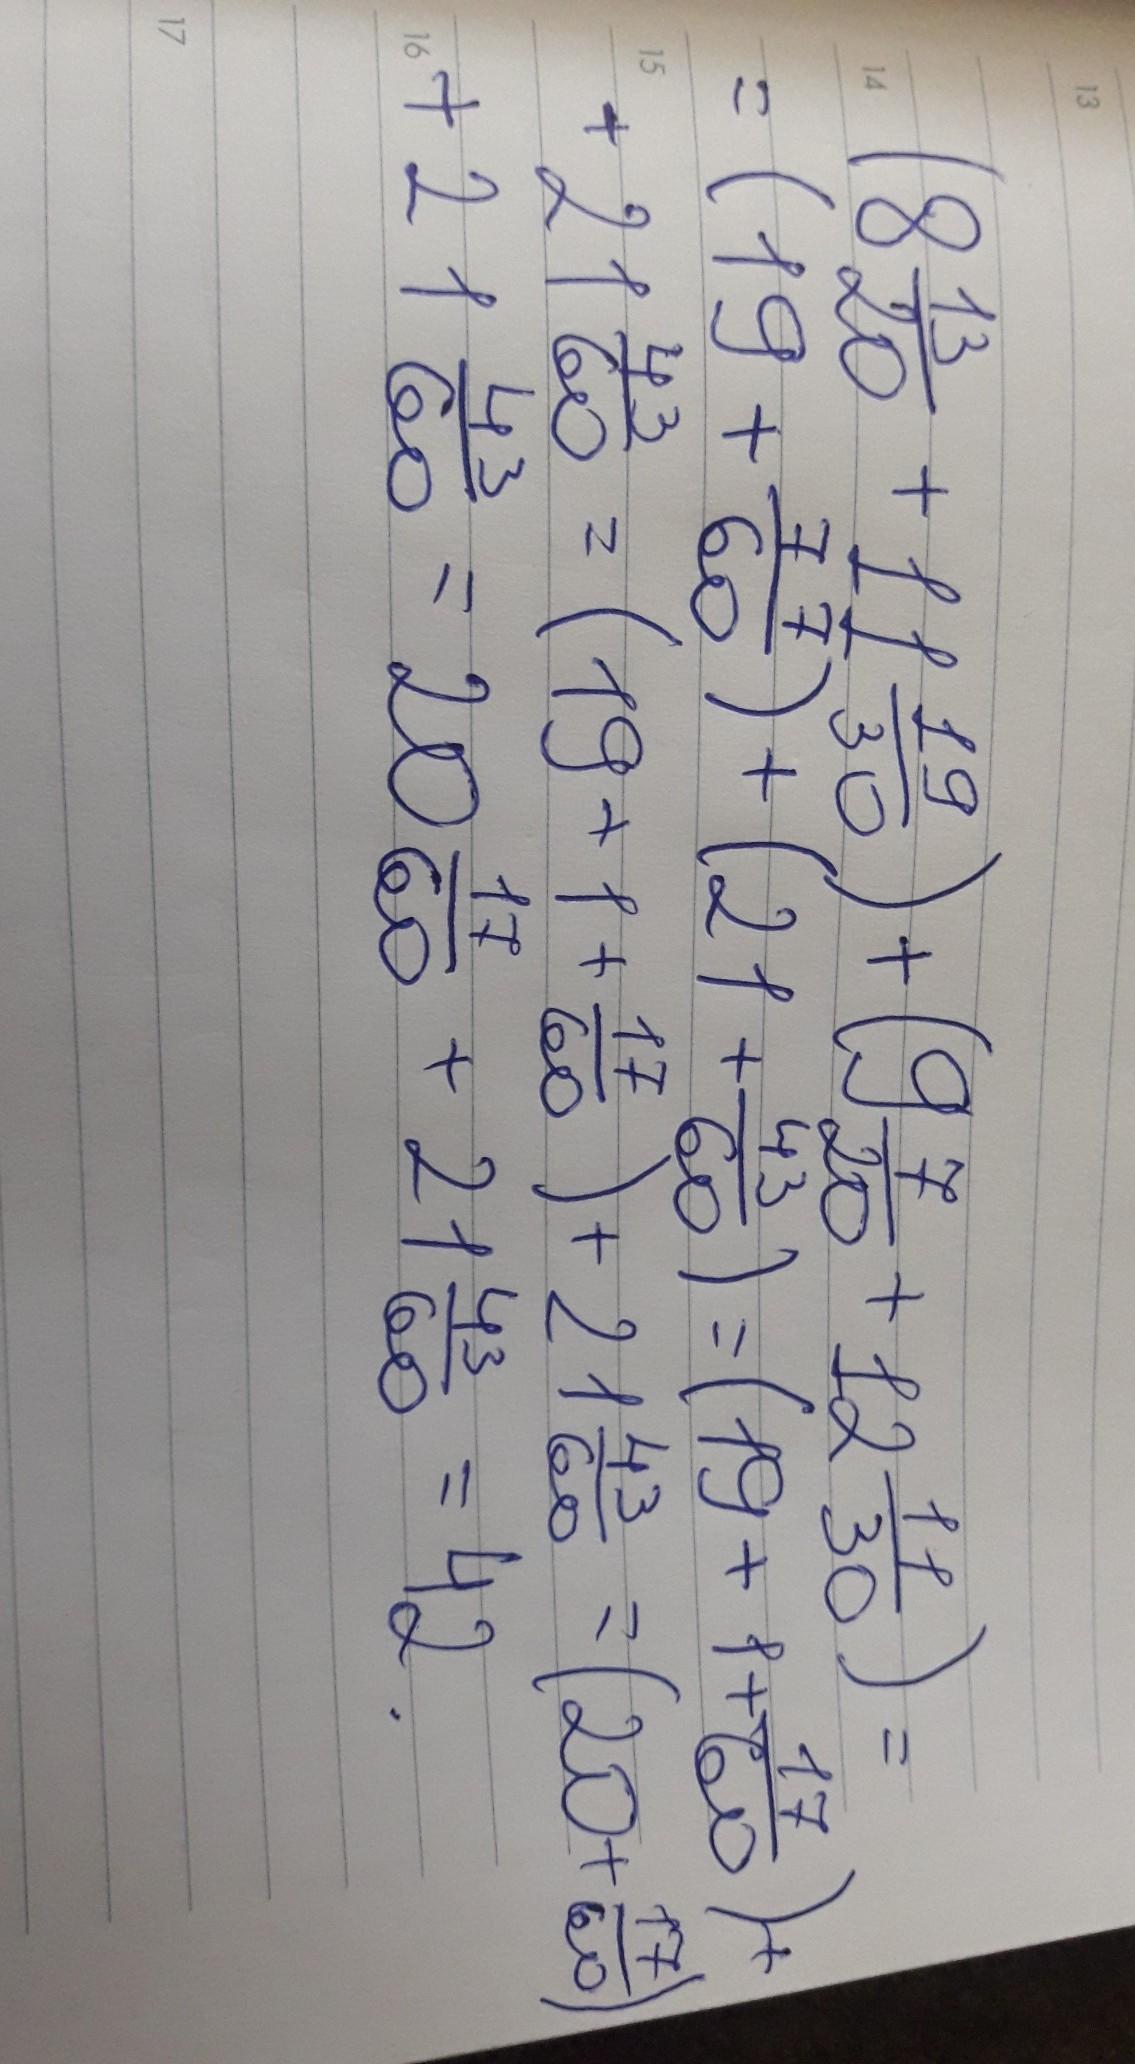 13
14
(8 13/20 + 11 19/30) + (9 7/20 + 12 11/30) =
= (19 + 77/60) + (21 + 43/60) = (19 + 1 + 17/60) +
15
+ 21 43/60 = (19 + 1 + 17/60) + 21 43/60 = (20 + 17/60)
16
+ 21 43/60 = 20 17/60 + 21 43/60 = 42.
17